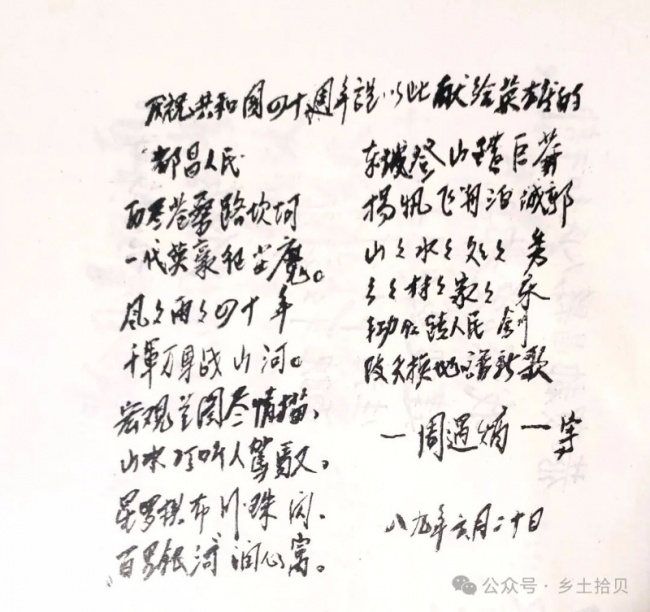 庆祝共和国四十周年谨以此献给英雄的
都昌人民
历尽苍桑路坎坷
一代英豪征尘魔。
风风雨雨四十年
千军万马战山河。
宏观兰图尽情描、
山水叮听人驾驭。
星罗棋布川珠闪、
百里银河润心窝。
车城登山
扬帆飞舟泊城郭
山山水水处处秀
村村家家乐
功在人民
改天换地谱新歌
一周遇
八九年六月二十日
公众号·乡土拾贝